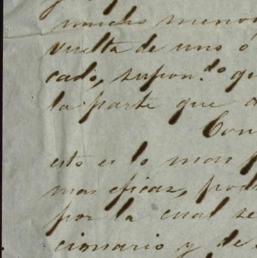 mucho menos
vuelta de uno o
cado, supon.do qu
la parte que a
Con
esto es lo mas
mas eficaz, pod
por la cual se
cionario y de